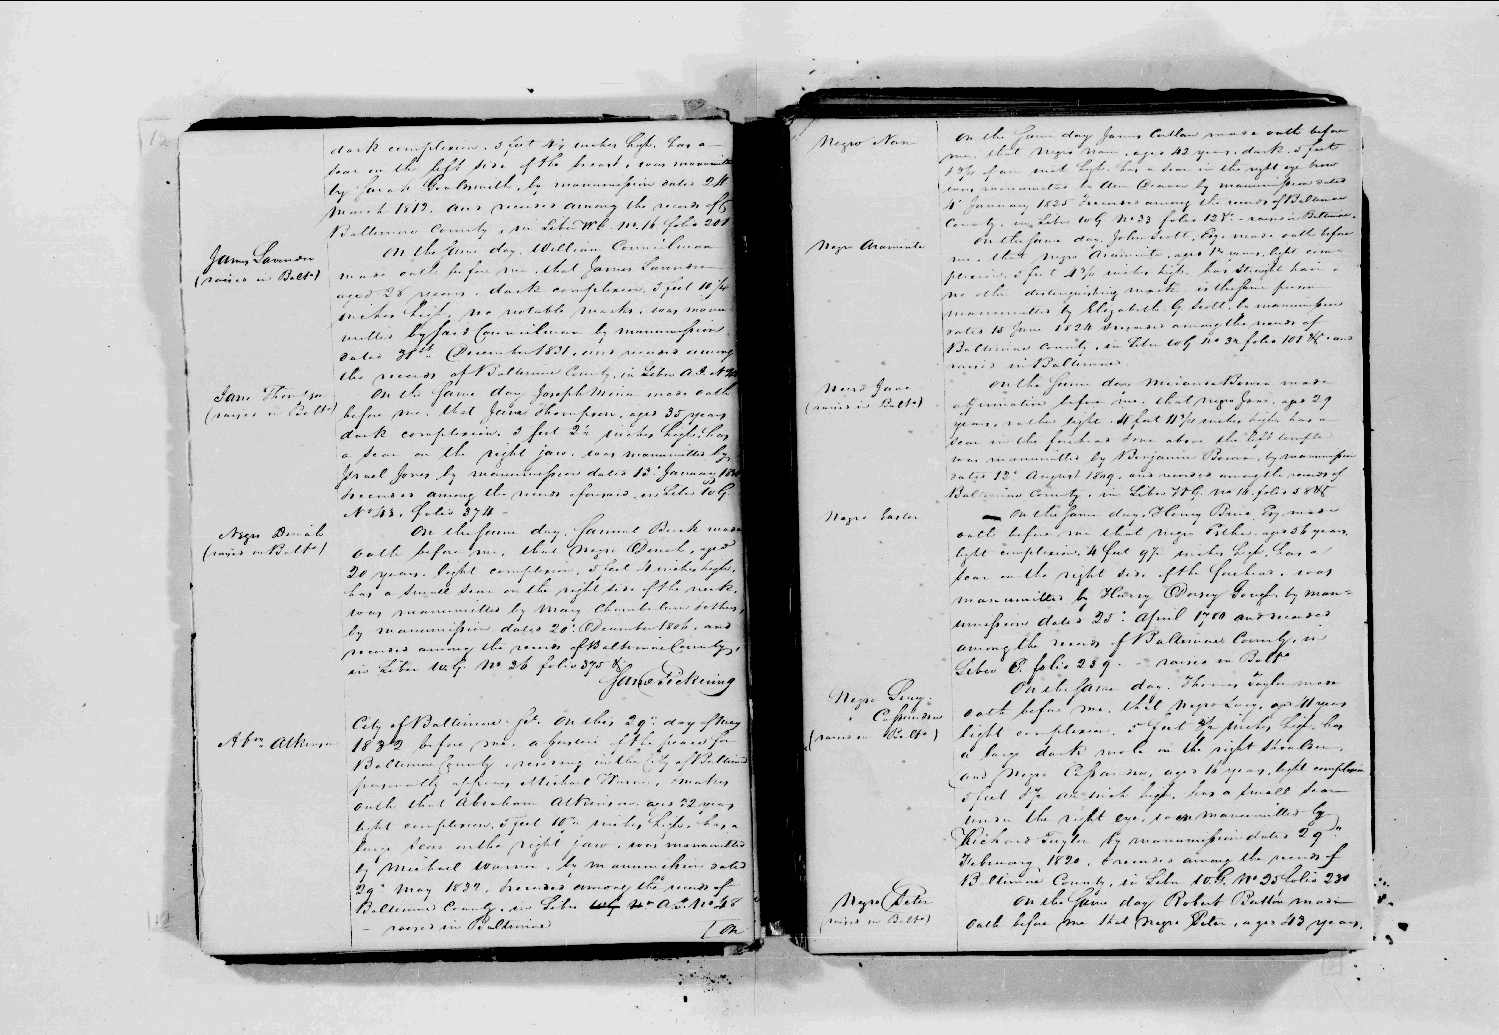 dark complexion, 5 feet 4½ inches high, has a
scar on the left side of the breast, was manumitted
by Sarah Goldsmith, by manumission dated 24
March 1812, and recorded among the records of
Baltimore County, in Liber W.G. No. 16 folio 201
James Lavender
(raised in Balto)
On the same day, William Councilman
made oath before me, that James Lavender
aged 28 years, dark complexion, 5 feet
inches high, no notable marks, was manu
mitted by said Councilman by manumission
dated 31st December 1831, and recorded among
the records of Baltimore County, in Liber A.I. No
Jane Thompson
(raised in Balto)
On the same day Joseph made oath
before me, that Jane Thompson, aged 35 years
dark complexion, 5 feet 2½ inches high, has
a scar on the right jaw, was manumitted by
Israel Jones by manumission dated 13th January
& recorded among the records aforesaid, in Liber W.G.
No 43, folio 374 -
Negro Dinah
(raised in Balto)
On the same day, Samuel made
oath before me, that Negro Dinah, aged
20 years, light complexion, 5 feet 4 inches high,
has a small scar on the right side of the neck,
was manumitted by Mary Chamberlain & others,
by manumission dated 20th December 1806, and
recorded among the records of Baltimore County,
in Liber W.G. No 26 folio 395 &c
Jane Pickering
Abm Atkinson
City of Baltimore Sct. On this 29th day of May
1832 before me, a Justice of the peace for
Baltimore County, residing in the City of Baltimore
personally appears Michael Warner, & makes
oath that Abraham Atkinson, aged 22 years
light complexion, 5 feet 10½ inches high, has a
large scar on the right jaw, was manumitted
by Michael Warner, by manumission dated
29th May 1832, & recorded among the records of
Baltimore County, in Liber W.G. No A.I. No 48
- raised in Baltimore
[On
Negro Nan
On the same day James made oath before
me, that Negro Nan, aged 42 years, dark, 5 feet
of an inch high, has a scar in the right eye brow
was manumitted by Ann by manumission dated
4th January 1825 & recorded among the records of Baltimore
County, in Liber W.G. No 33 folio 128 - raised in Baltimore.
Negro Araminta
On the same day, John Scott, Esq. made oath before
me, that Negro Araminta, aged years, light com-
plexion, 5 feet 4½ inches high, has straight hair,
no other distinguishing mark is the same person
manumitted by Elizabeth G. Scott, by manumission
dated 15 June 1824 & recorded among the records of
Baltimore County, in Liber W.G. No 32 folio 101 &c. and
raised in Baltimore.
Negro Jane
(raised in Balto)
On the same day made
affirmation before me, that Negro Jane, aged 29
years, rather light, 4 feet 11¾ inches high, has a
scar in the forehead & one above the left temple
was manumitted by Benjamin by manumission
dated 12th August 1809, and recorded among the records of
Baltimore County, in Liber W.G. No 14 folio 58 &c
Negro Easter
On the same day, Henry Esq. made
oath before me that Negro Esther, aged 56 years,
light complexion, 4 feet 9½ inches high, has a
scar on the right side of the forehead, was
manumitted by Harry Dorsey Gough, by man=
umission dated 25th April 1780 and recorded
among the records of Baltimore County, in
Liber folio 239. - raised in Balto
Negro Lucy
" Cassandra
(raised in Balto)
On the same day, Thomas Taylor made
oath before me, that Negro Lucy, aged 41 years
light complexion, 5 feet inches high, has
a large dark mole on the right shoulder,
and Negro Cassandra, aged years, light complexion
5 feet an inch high, has a small scar
under the right eye, were manumitted by
Richard Taylor by manumission dated 29th
February 1820, & recorded among the records of
Baltimore County, in Liber W.G. No 25 folio 230
Negro Peter
(raised in Balto)
On the same day Robert made
oath before me that Negro Peter, aged 43 years,